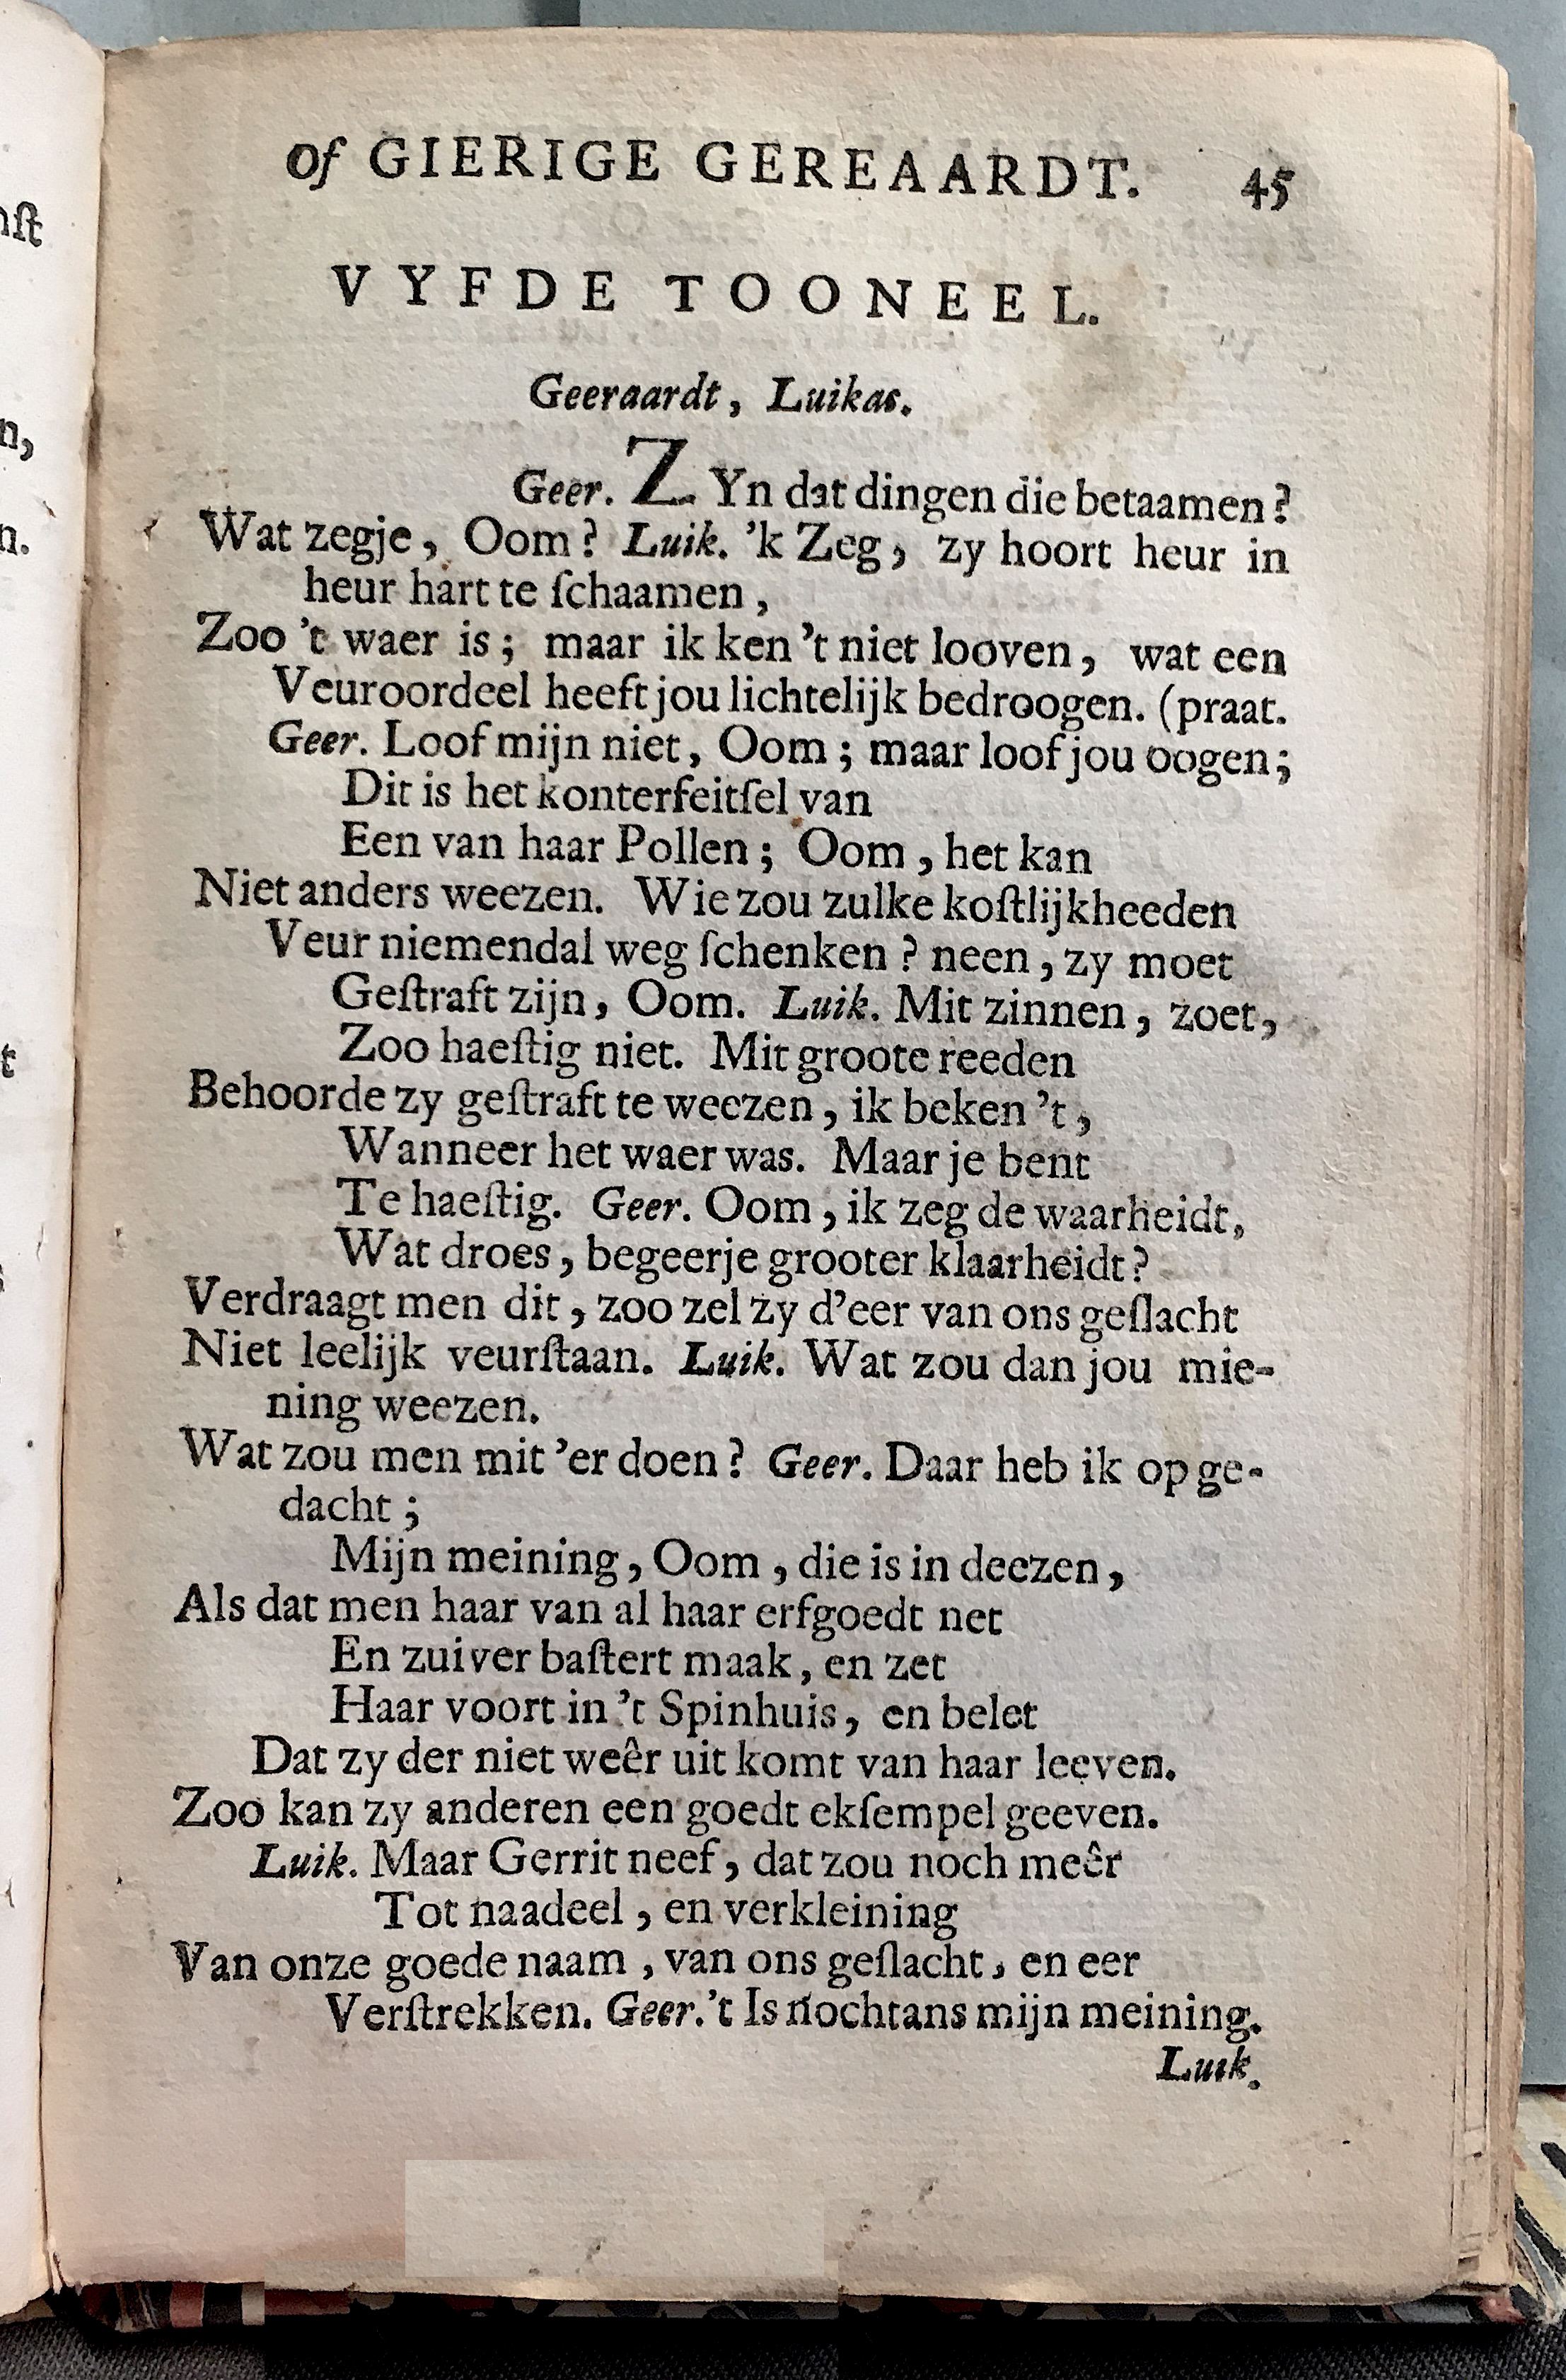 Of GIERIGE GEREAARDT. 45
VYFDE TOONEEL.
Geeraardt, Luikas.
Geer. ZYn dat dingen die betaamen?
Wat zegje, Oom? Luik. 'k Zeg, zy hoort heur in
heur hart te ſchaamen,
Zoo 't waer is; maar ik ken 't niet looven, wat een
Veuroordeel heeft jou lichtelijk bedroogen. (praat.
Geer. Loof mijn niet, Oom; maar loof jou oogen;
Dit is het konterfeitſel van
Een van haar Pollen; Oom, het kan
Niet anders weezen. Wie zou zulke koſtlijkheeden
Veur niemendal weg ſchenken? neen, zy moet
Geſtraft zijn, Oom. Luik. Mit zinnen, zoet,
Zoo haeſtig niet. Mit groote reeden
Behoorde zy geſtraft te weezen, ik beken 't,
Wanneer het waer was. Maar je bent
Te haeſtig. Geer. Oom, ik zeg de waarheidt,
Wat droes, begeerje grooter klaarheidt?
Verdraagt men dit, zoo zel zy d'eer van ons geſlacht
Niet leelijk veurſtaan. Luik. Wat zou dan jou mie-
ning weezen.
Wat zou men mit 'er doen? Geer. Daar heb ik op ge-
dacht;
Mijn meining, Oom, die is in deezen,
Als dat men haar van al haar erfgoedt net
En zuiver baſtert maak, en zet
Haar voort in 't Spinhuis, en belet
Dat zy der niet weêr uit komt van haar leeven.
Zoo kan zy anderen een goedt ekſempel geeven.
Luik. Maar Gerrit neef, dat zou noch meêr
Tot naadeel, en verkleining
Van onze goede naam, van ons geſlacht, en eer
Verſtrekken. Geer. 't Is nochtans mijn meining.
Luik.
nſt
n,
n.
t